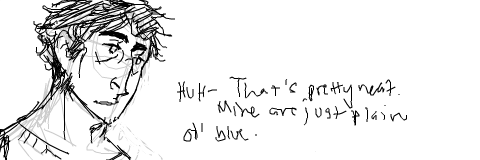 HUH- That's pretty neat.
Mine are just plain
ol' blue.